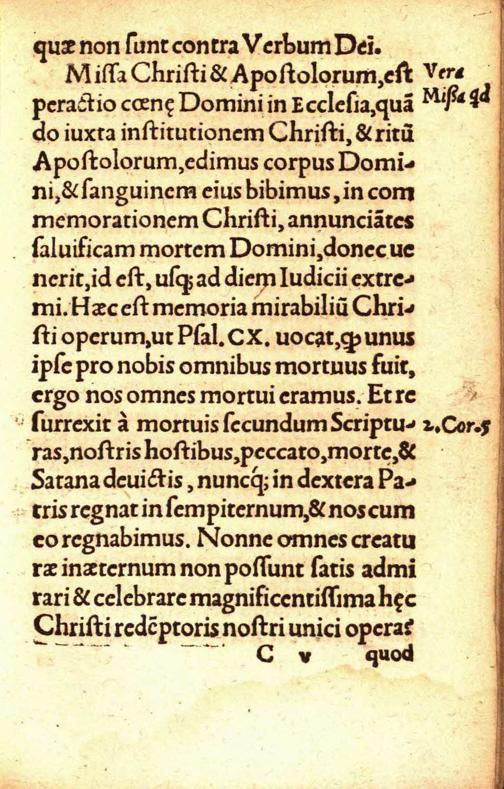 quæ non ſunt contra Verbum Dei.
Miſſa Chriſti & Apoſtolorum, eſt
peractio cœnę Domini in Eccleſia, quã
do iuxta inſtitutionem Chriſti, & ritũ
Apoſtolorum, edimus corpus Domi-
ni, & ſanguinem eius bibimus, in com
memorationem Chriſti, annunciãtes
ſaluificam mortem Domini, donec ue
nerit, id eſt, uſq; ad diem Iudicii extre-
mi. Hæc eſt memoria mirabiliũ Chri-
ſti operum, ut Pſal. CX. uocat, ꝙ unus
ipſe pro nobis omnibus mortuus fuit,
ergo nos omnes mortui eramus. Et re
ſurrexit à mortuis ſecundum Scriptu-
ras, noſtris hoſtibus, peccato, morte, &
Satana deuictis, nuncq́; in dextera Pa-
tris regnat in ſempiternum, & nos cum
eo regnabimus. Nonne omnes creatu
ræ inæternum non poſſunt ſatis admi
rari & celebrare magnificentiſſima hęc
Chriſti redẽptoris noſtri unici opera?
C v quod
Vera
Miſſa qd
2. Cor. 5